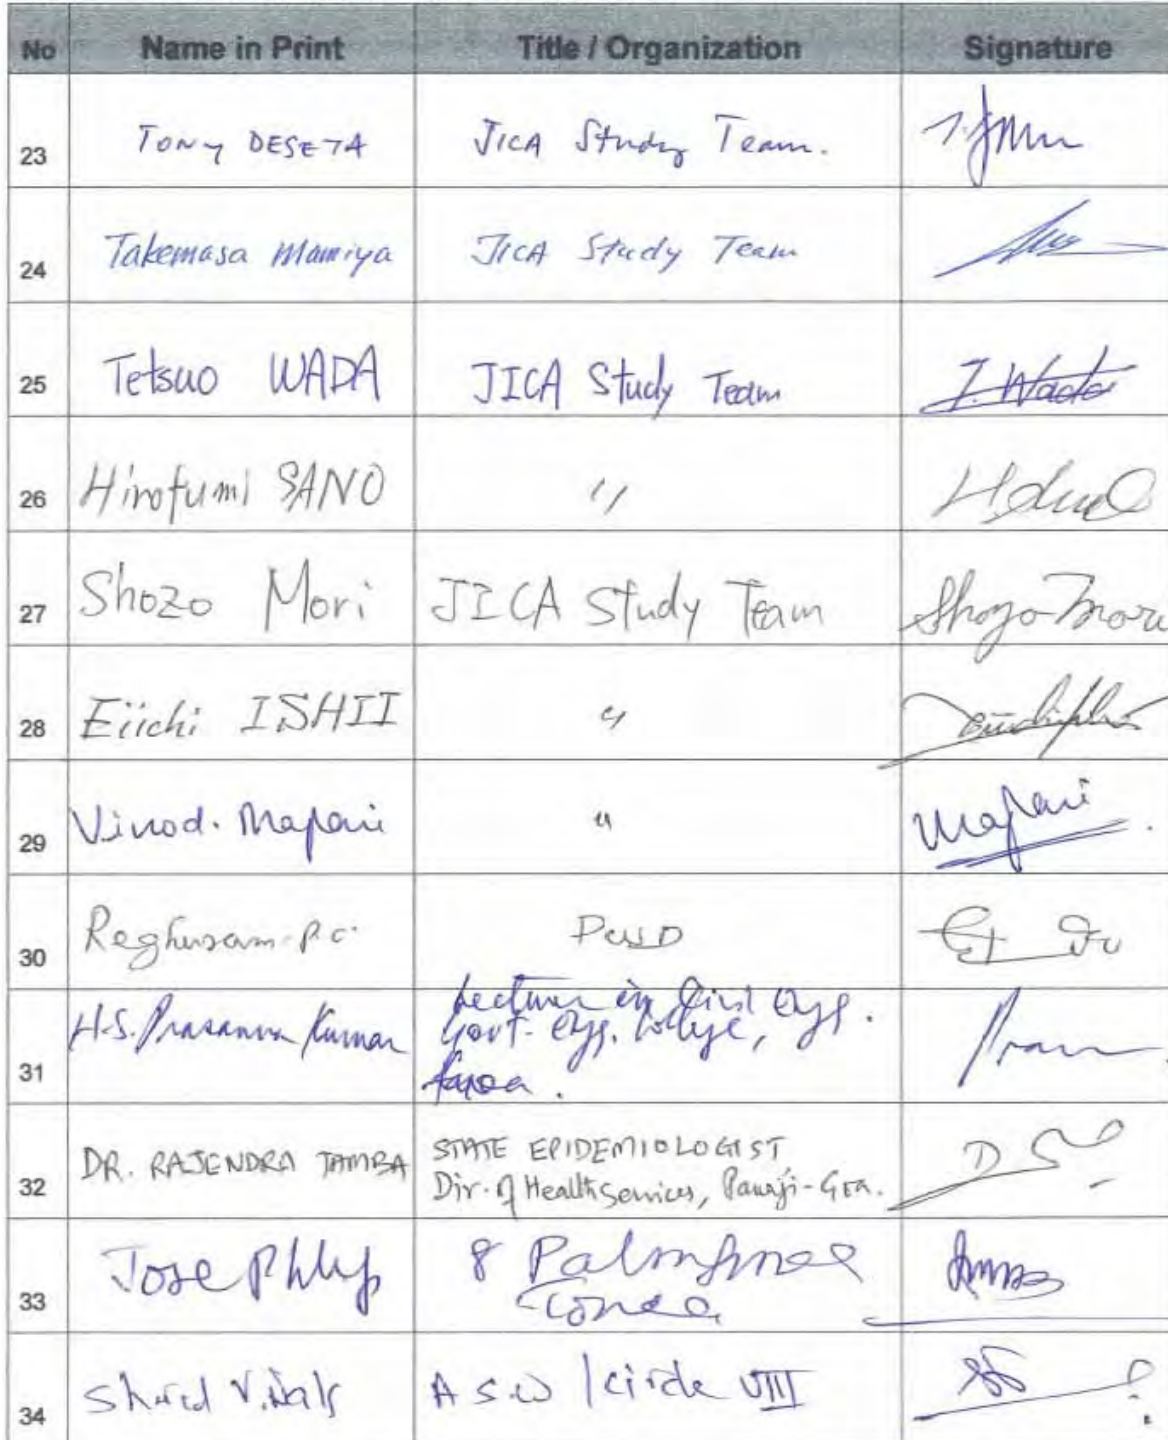 No Name in Print Title / Organization Signature
23 TONY DESETA JICA Study Team.
24 Takemasa Mamiya JICA Study Team
25 Tetsuo WADA JICA Study Team T. Wada
26 Hirofumi SANO "
27 Shozo Mori JICA Study Team Shozo Mori
28 Eiichi ISHII "
29 Vinod. Mapari " Mapari
30 Reghuram P.C. PWD
31 H.S. Prasanna Kumar Lecturer in Civil Engg.
Govt. Engg. College,
32 DR. RAJENDRA TAMBA STATE EPIDEMIOLOGIST
Dir. of Health Services, Panaji-Goa.
33 Jose
34 ASW / Circle VIII